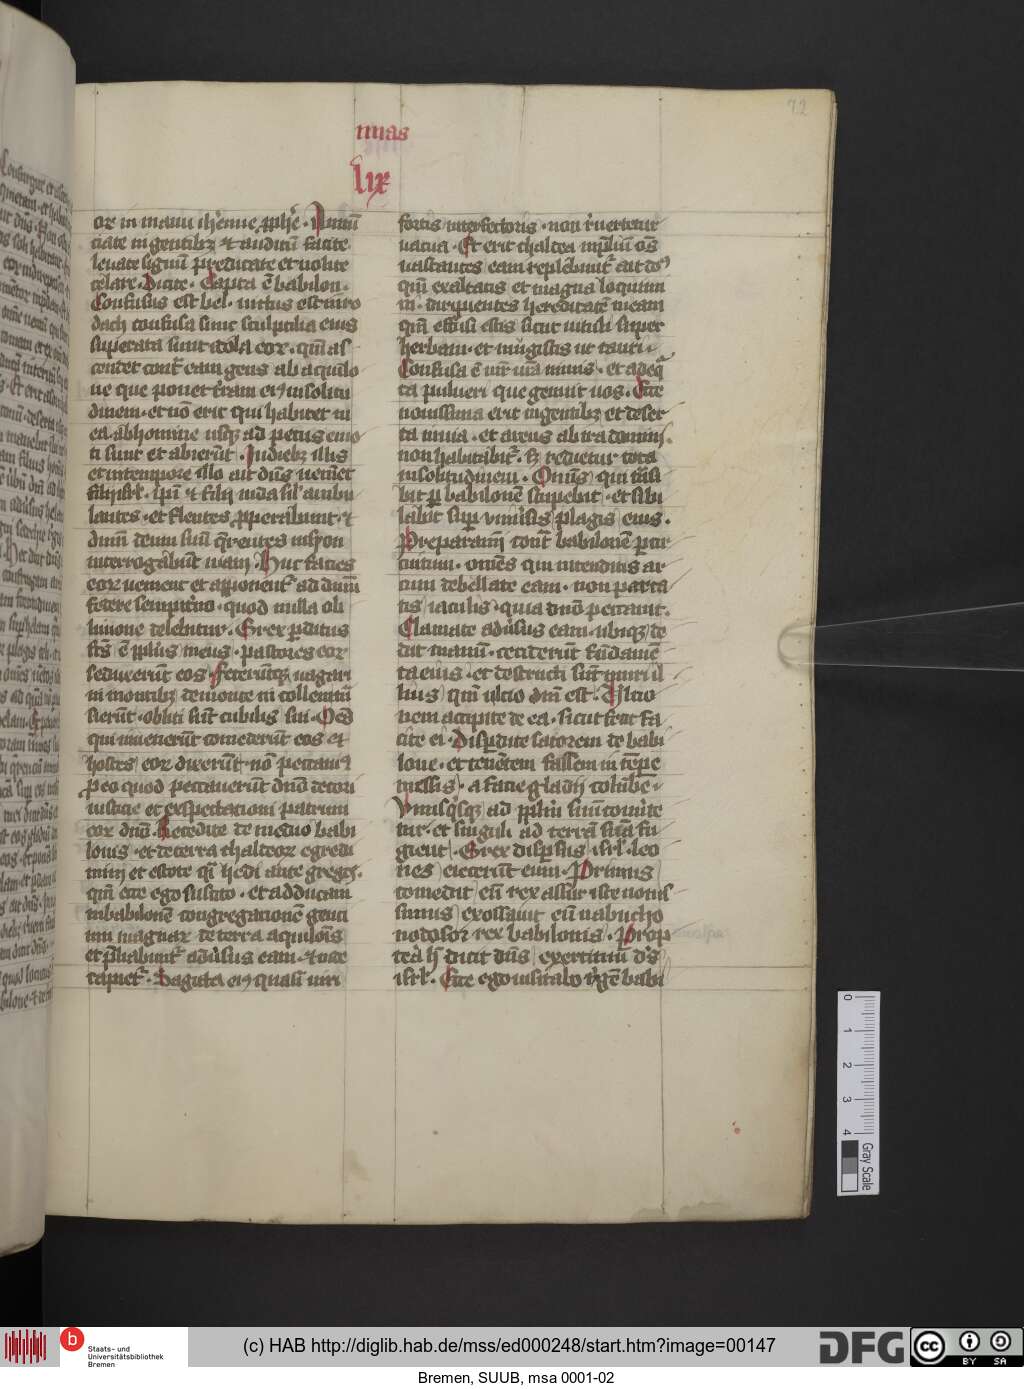 72
mias
lix
or in manu iheremie pphe . Annun
ciate in gentibz et auditu facite
leuate signu predicate et nolite
celare . Dicite . Capta e babilon .
Confusus est bel . uictus est mero
dach confusa sunt sculptilia eius
superata sunt idola eor . qm as
cendet cont eam gens ab aquilo
ne que ponet terram ei in solitu
dinem . et no erit qui habitet in
ea . ab homine usqz ad pecus emo
ti sunt et abierut . In diebz illis
et in tempore illo ait dns uenient
filii isrl . ipi et filii iuda sil ambu
lantes . et flentes pperabunt . et
dnm deum suu qrentes in syon
interrogabunt uiam . Huc facies
eor uenient et apponent ad dnm
federe sempitno . quod nulla obli
liuione delebitur . Grex pditus
fcs e ppls meus . pastores eor
seduxerut eos . feceruntqz uagari
in montibz de monte in collem
sierut . obliti sut cubilis sui . Oes
qui inuenerut comederut eos et
hostes eor dixerut . no peccauim
p eo quod peccauerut dno decori
iusticie et exspectacioni patrum
eor dno . Recedite de medio babi
lonis . et de terra chaldeor egredi
mini et estote qi hedi ante greges .
qm ecce ego suscito . et adducam
in babilone congregatione genci
um magnar de terra aquilonis
et phabunt adusus eam . et inde
capiet . Sagitta ei quasi uiri
fortis interfectoris . non reuertetur
uacua . Et erit chaldea in pdam os
uastantes eam replebunt ait dos
qm exaltatis et magna loquimi
ni . diripientes hereditate meam
qm effusi estis sicut uituli super
herbam . et mugistis ut tauri .
Confusa e mr ura nimis . et adeq
ta pulueri que genuit uos . Ecce
nouissima erit in gentibz et deser
ta inuia . et arens ab ira domini .
non habitabit . sz redietur tota
in solitudinem . Omis qui tnsi
bit p babilone stupebit . et sibi
labit sup vniusis plagis eius .
Preparamini cont babilone p cir
cuitum . omes qui intenditis ar
cum debellate eam . non parca
tis iaculis . quia dno peccauit .
Clamate adusus eam . ubiqz de
dit manu . ceciderut fundame
ta eius . et destructi sut muri il
lius . qm ulcio dni est . Ulcio
nem accipite de ea . sicut fecit fa
cite ei . Disperdite satorem de babi
lone . et tenentem falsem in tepe
messis . a facie gladii columbe .
Vnusqsqz ad pplm suu conuerte
tur . et singuli ad terra sua fu
gient . Grex dispsus isrl . leo
nes eiecerut eum . Primus
comedit eu rex assur iste nouis
simus exossauit eu nabucho
nodosor rex babilonis . Prop
tea h dicit dns exercituu ds
isrl . Ecce ego uisitabo rege babi
0 1 2 3 4
Gray Scale
Staats- und
Universitätsbibliothek
Bremen
(c) HAB http://diglib.hab.de/mss/ed000248/start.htm?image=00147
DFG
CC BY SA
Bremen, SUUB, msa 0001-02